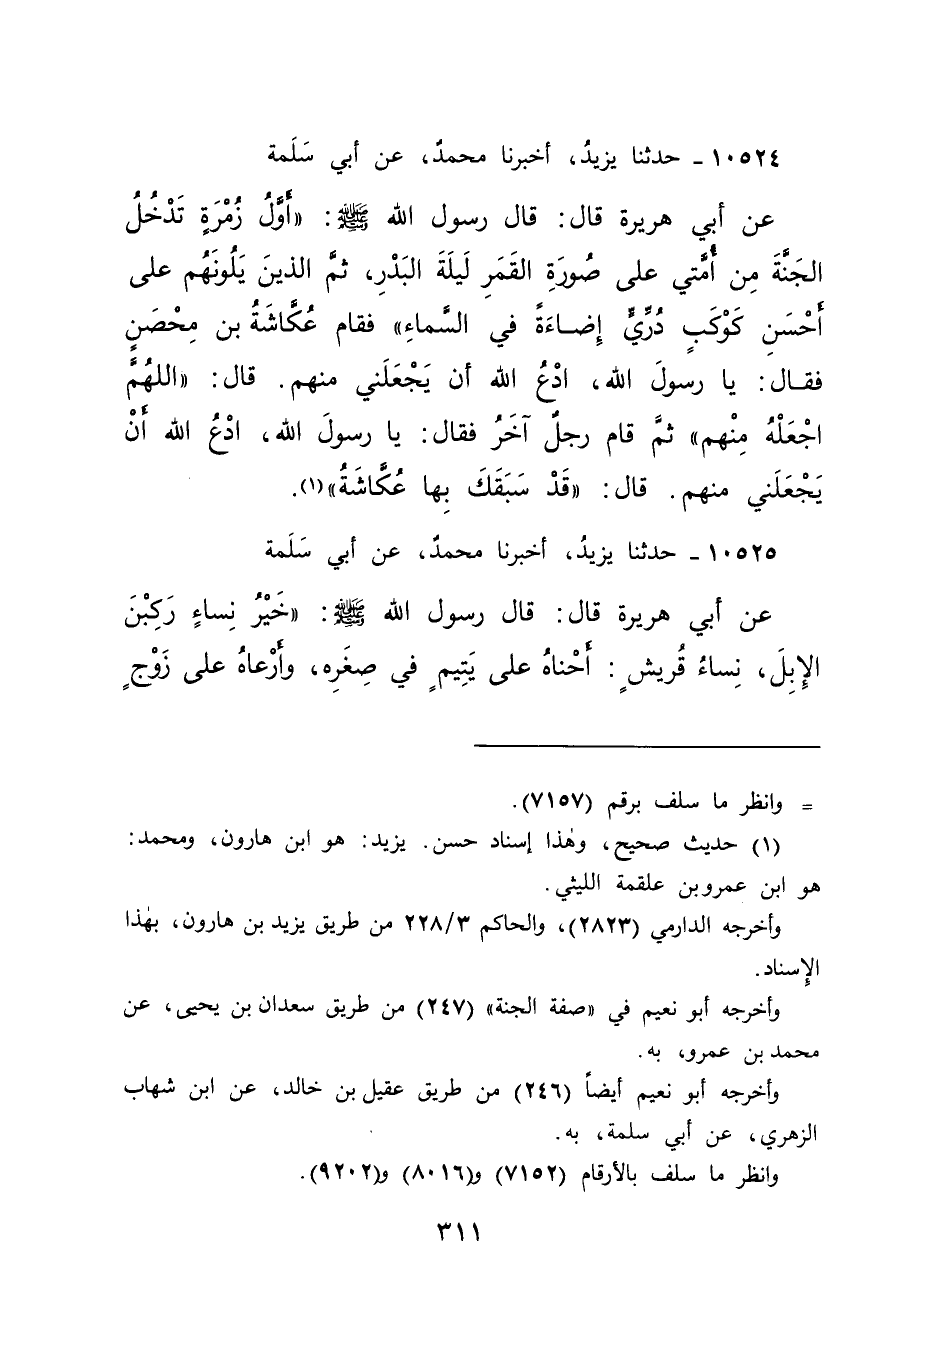 ١٠٥٢٤ ـ حدثنا يزيدُ، أخبرنا محمدٌ، عن أبي سَلَمة
عن أبي هريرة قال: قال رسول الله ﷺ: «أَوَّلُ زُمْرَةٍ تَدْخُلُ
الجَنَّةَ مِن أُمَّتي على صُورَةِ القَمَرِ لَيلَةَ البَدْرِ، ثمَّ الذينَ يَلُونَهُم على
أَحْسَنِ كَوْكَبٍ دُرِّيٍّ إِضاءَةً في السَّماءِ» فقام عُكَّاشَةُ بن مِحْصَنٍ
فقال: يا رسولَ الله، ادْعُ الله أن يَجْعَلَني منهم. قال: «اللهُمَّ
اجْعَلْهُ مِنْهم» ثمَّ قام رجلٌ آخَرُ فقال: يا رسولَ الله، ادْعُ الله أَنْ
يَجْعَلَني منهم. قال: «قَدْ سَبَقَكَ بِها عُكَّاشَةُ»(١).
١٠٥٢٥ ـ حدثنا يزيدُ، أخبرنا محمدٌ، عن أبي سَلَمة
عن أبي هريرة قال: قال رسول الله ﷺ: «خَيْرُ نِساءٍ رَكِبْنَ
الإِبِلَ، نِساءُ قُريشٍ: أَحْناهُ على يَتِيمٍ في صِغَرِه، وأَرْعاهُ على زَوْجٍ
= وانظر ما سلف برقم (٧١٥٧).
(١) حديث صحيح، وهٰذا إسناد حسن. يزيد: هو ابن هارون، ومحمد:
هو ابن عمرو بن علقمة الليثي.
وأخرجه الدارمي (٢٨٢٣)، والحاكم ٢٢٨/٣ من طريق يزيد بن هارون، بهٰذا
الإسناد.
وأخرجه أبو نعيم في «صفة الجنة» (٢٤٧) من طريق سعدان بن يحيى، عن
محمد بن عمرو، به.
وأخرجه أبو نعيم أيضاً (٢٤٦) من طريق عقيل بن خالد، عن ابن شهاب
الزهري، عن أبي سلمة، به.
وانظر ما سلف بالأرقام (٧١٥٢) و(٨٠١٦) و(٩٢٠٢).
٣١١